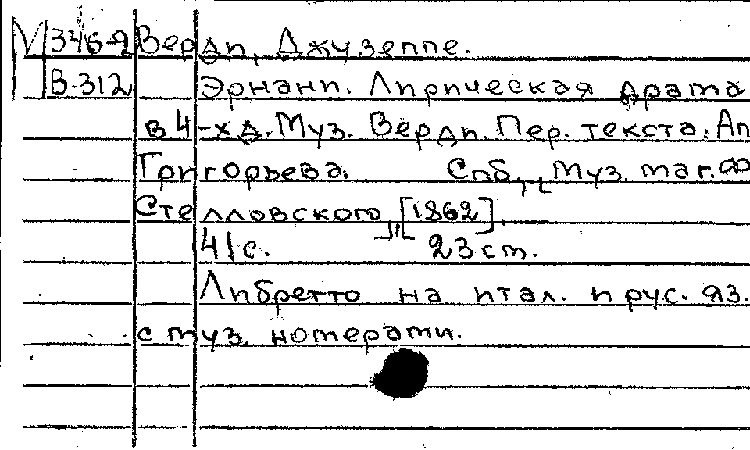 М 346-2 Верди, Джузеппе.
В-312 Эрнани. Лирическая драма
в 4-х д. Муз. Верди. Пер. текста: Ап
Григорьева. Спб., Муз. маг. Ф
Стелловского, [1862].
41 с. 23 см.
Либретто на итал. и рус. яз.
с муз. номерами.